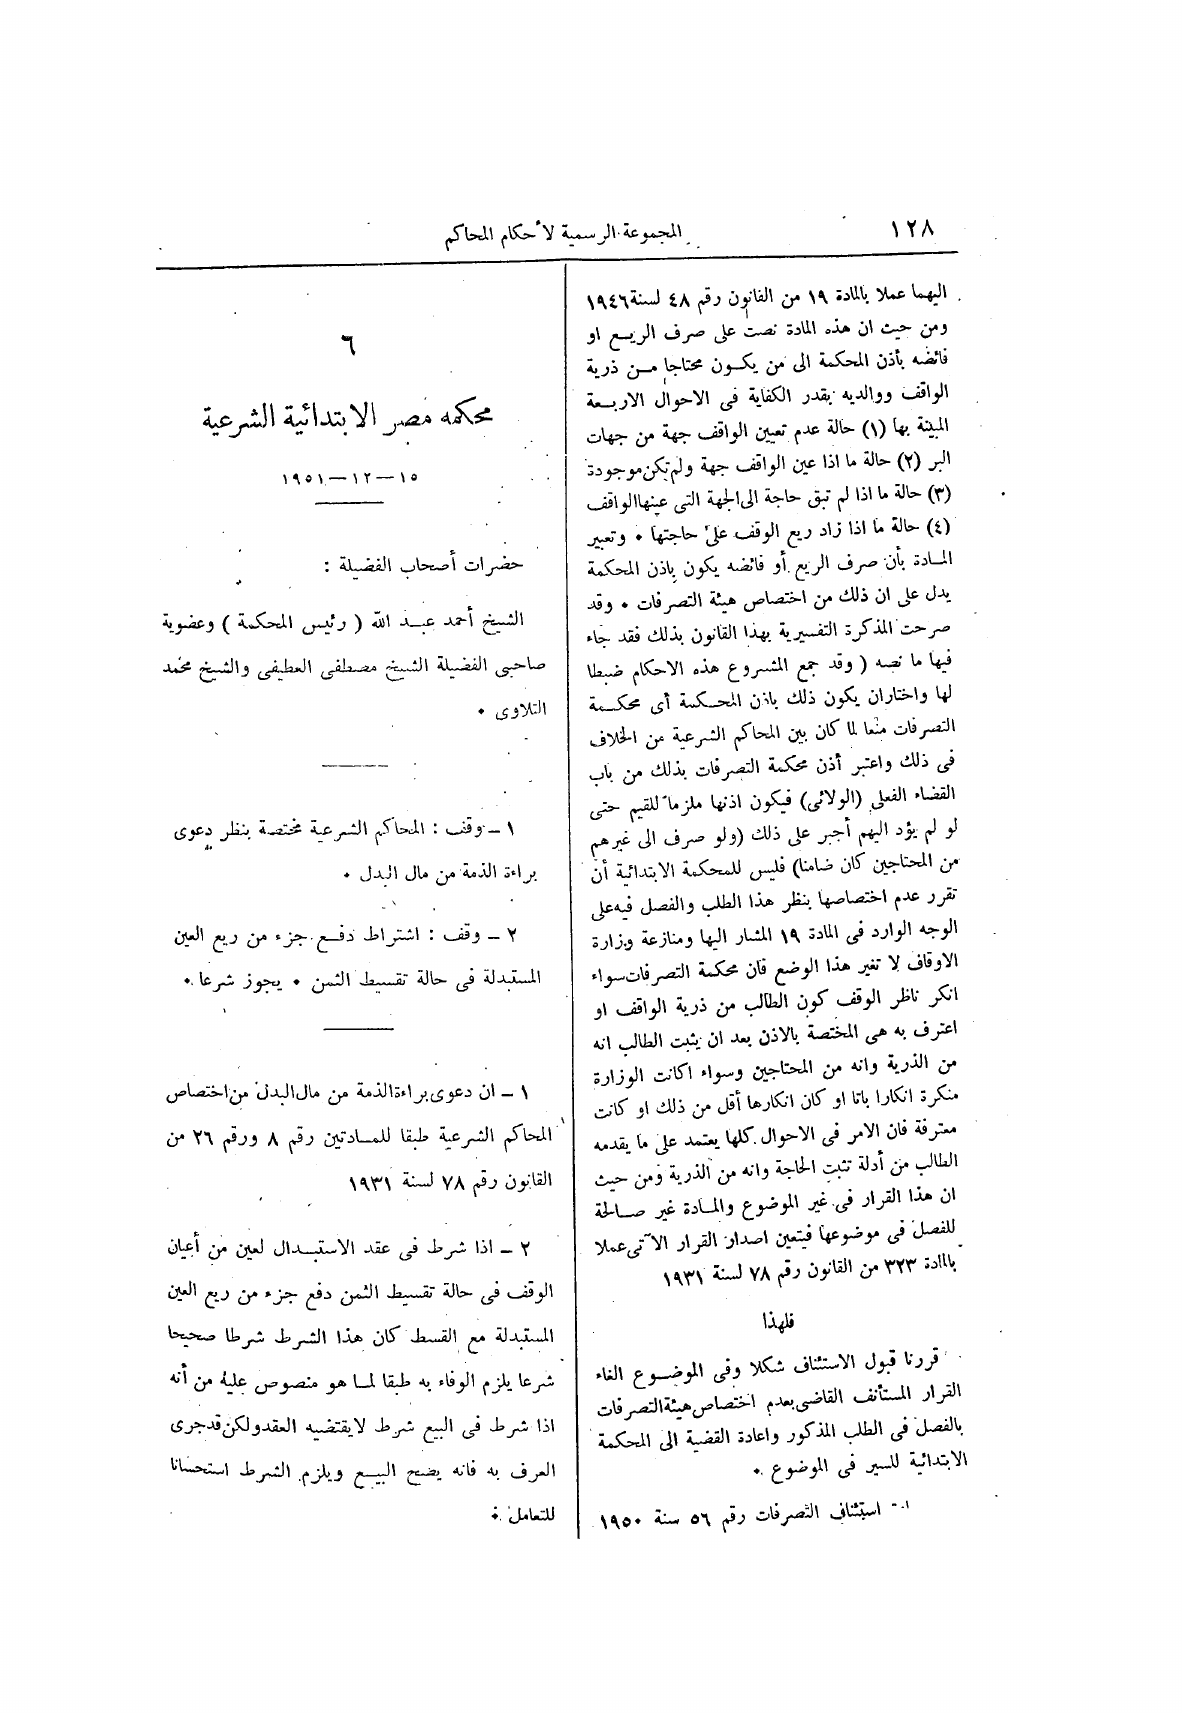 ١٢٨
المجموعة الرسمية لأحكام المحاكم
اليهما عملا بالمادة ١٩ من القانون رقم ٤٨ لسنة ١٩٤٦
ومن حيث ان هذه المادة نصت على صرف الريع او
فائضه بأذن المحكمة الى من يكون محتاجا من ذرية
الواقف ووالديه بقدر الكفاية فى الاحوال الاربعة
المبينة بها (١) حالة عدم تعيين الواقف جهة من جهات
البر (٢) حالة ما اذا عين الواقف جهة ولم تكن موجودة
(٣) حالة ما اذا لم تبق حاجة الى الجهة التى عينها الواقف
(٤) حالة ما اذا زاد ريع الوقف على حاجتها ٠ وتعبير
المادة بأن صرف الريع أو فائضه يكون باذن المحكمة
يدل على ان ذلك من اختصاص هيئة التصرفات ٠ وقد
صرحت المذكرة التفسيرية بهذا القانون بذلك فقد جاء
فيها ما نصه ( وقد جمع المشروع هذه الاحكام ضبطا
لها واختاران يكون ذلك باذن المحكمة أى محكمة
التصرفات منعا لما كان بين المحاكم الشرعية من الخلاف
فى ذلك واعتبر أذن محكمة التصرفات بذلك من باب
القضاء الفعلى (الولائى) فيكون اذنها ملزما للقيم حتى
لو لم يؤد اليهم أجبر على ذلك (ولو صرف الى غيرهم
من المحتاجين كان ضامنا) فليس للمحكمة الابتدائية أن
تقرر عدم اختصاصها بنظر هذا الطلب والفصل فيه على
الوجه الوارد فى المادة ١٩ المشار اليها ومنازعة وزارة
الاوقاف لا تغير هذا الوضع فان محكمة التصرفات سواء
انكر ناظر الوقف كون الطالب من ذرية الواقف او
اعترف به هى المختصة بالاذن بعد ان يثبت الطالب انه
من الذرية وانه من المحتاجين وسواء اكانت الوزارة
منكرة انكارا باتا او كان انكارها أقل من ذلك او كانت
معترفة فان الامر فى الاحوال كلها يعتمد على ما يقدمه
الطالب من أدلة تثبت الحاجة وانه من الذرية ومن حيث
ان هذا القرار فى غير الموضوع والمادة غير صالحة
للفصل فى موضوعها فيتعين اصدار القرار الآتى عملا
بالمادة ٣٢٣ من القانون رقم ٧٨ لسنة ١٩٣١
فلهذا
قررنا قبول الاستئناف شكلا وفى الموضوع الغاء
القرار المستأنف القاضى بعدم اختصاص هيئة التصرفات
بالفصل فى الطلب المذكور واعادة القضية الى المحكمة
الابتدائية للسير فى الموضوع ٠
استئناف التصرفات رقم ٥٦ سنة ١٩٥٠
٦
محكمه مصر الابتدائية الشرعية
١٥ – ١٢ – ١٩٥١
حضرات أصحاب الفضيلة :
الشيخ أحمد عبد الله ( رئيس المحكمة ) وعضوية
صاحبى الفضيلة الشيخ مصطفى العطيفى والشيخ محمد
التلاوى ٠
١ – وقف : المحاكم الشرعية مختصة بنظر دعوى
براءة الذمة من مال البدل ٠
٢ – وقف : اشتراط دفع جزء من ريع العين
المستبدلة فى حالة تقسيط الثمن ٠ يجوز شرعا ٠
١ – ان دعوى براءة الذمة من مال البدل من اختصاص
المحاكم الشرعية طبقا للمادتين رقم ٨ ورقم ٢٦ من
القانون رقم ٧٨ لسنة ١٩٣١
٢ – اذا شرط فى عقد الاستبدال لعين من أعيان
الوقف فى حالة تقسيط الثمن دفع جزء من ريع العين
المستبدلة مع القسط كان هذا الشرط شرطا صحيحا
شرعا يلزم الوفاء به طبقا لما هو منصوص عليه من أنه
اذا شرط فى البيع شرط لا يقتضيه العقد ولكن قد جرى
العرف به فانه يصح البيع ويلزم الشرط استحسانا
للتعامل ٠